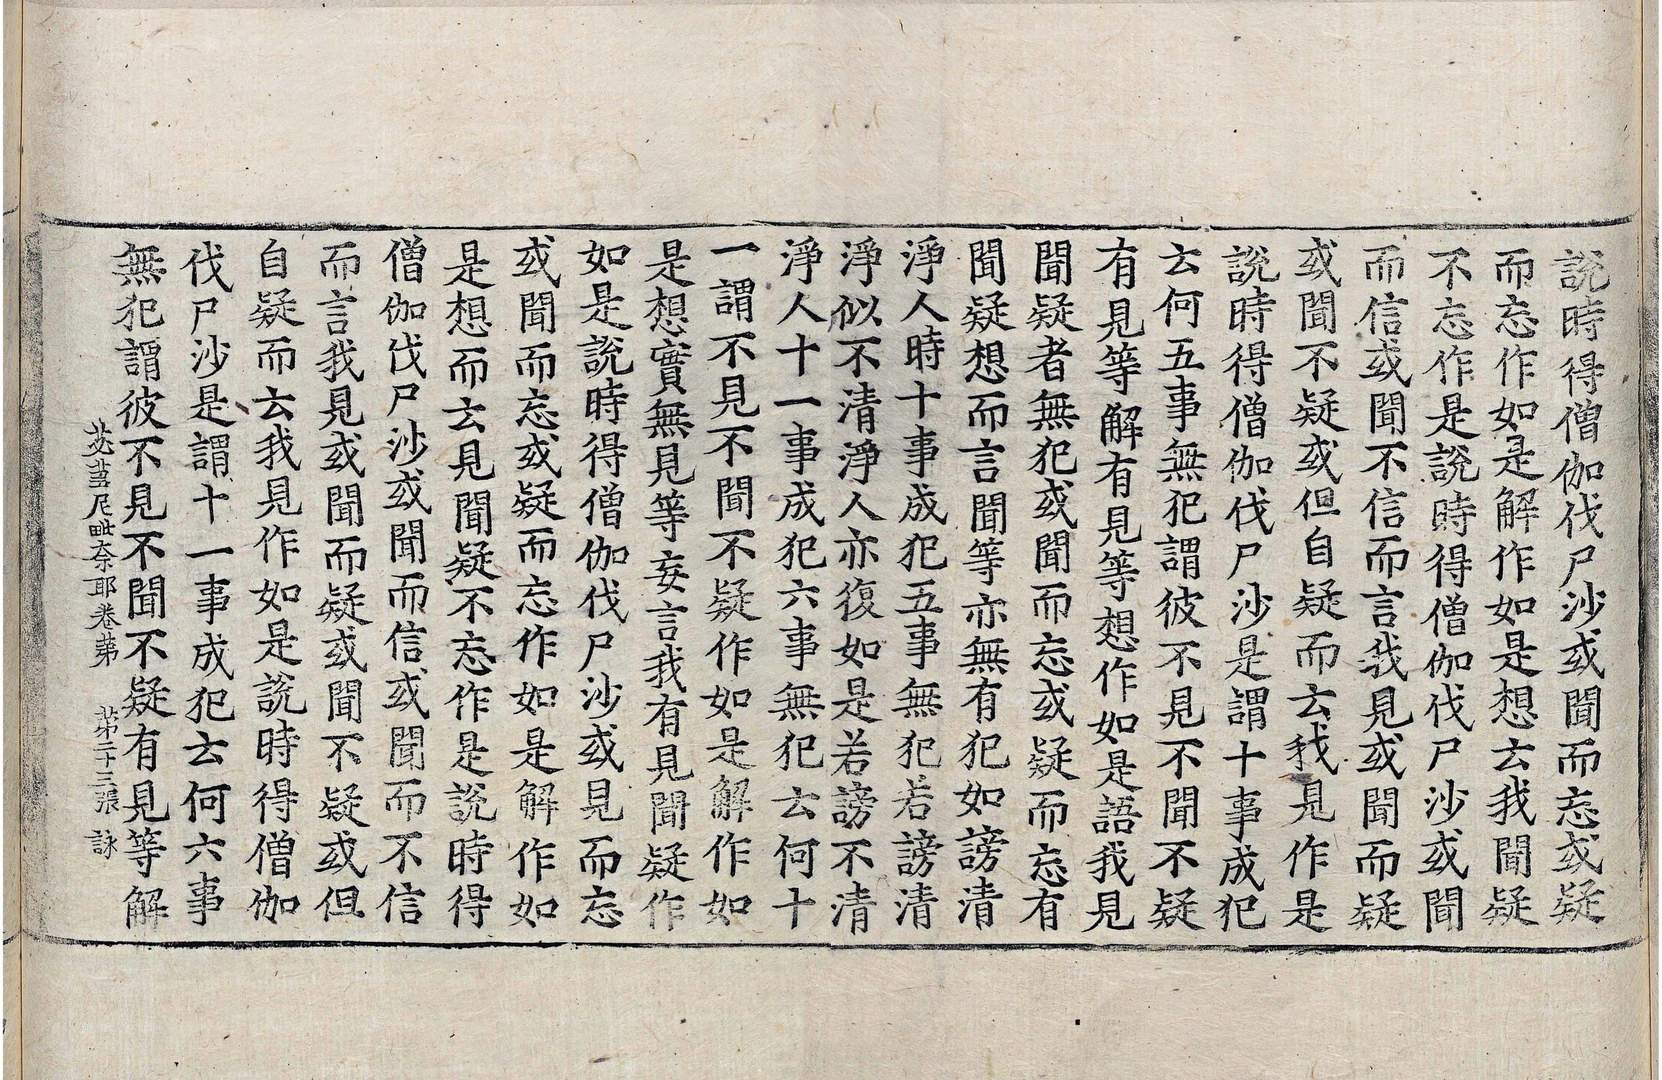 說時得僧伽伐尸沙或聞而忘或疑
而忘作如是解作如是想云我聞疑
不忘作是說時得僧伽伐尸沙或聞
而信或聞不信而言我見或聞而疑
或聞不疑或但自疑而云我見作是
說時得僧伽伐尸沙是謂十事成犯
云何五事無犯謂彼不見不聞不疑
有見等解有見等想作如是語我見
聞疑者無犯或聞而忘或疑而忘有
聞疑想而言聞等亦無有犯如謗清
淨人時十事成犯五事無犯若謗清
淨似不清淨人亦復如是若謗不清
淨人十一事成犯六事無犯云何十
一謂不見不聞不疑作如是解作如
是想實無見等妄言我有見聞疑作
如是說時得僧伽伐尸沙或見而忘
或聞而忘或疑而忘作如是解作如
是想而云見聞疑不忘作是說時得
僧伽伐尸沙或聞而信或聞而不信
而言我見或聞而疑或聞不疑或但
自疑而云我見作如是說時得僧伽
伐尸沙是謂十一事成犯云何六事
無犯謂彼不見不聞不疑有見等解
苾蒭尼毗奈耶卷第 第二十三張 詠